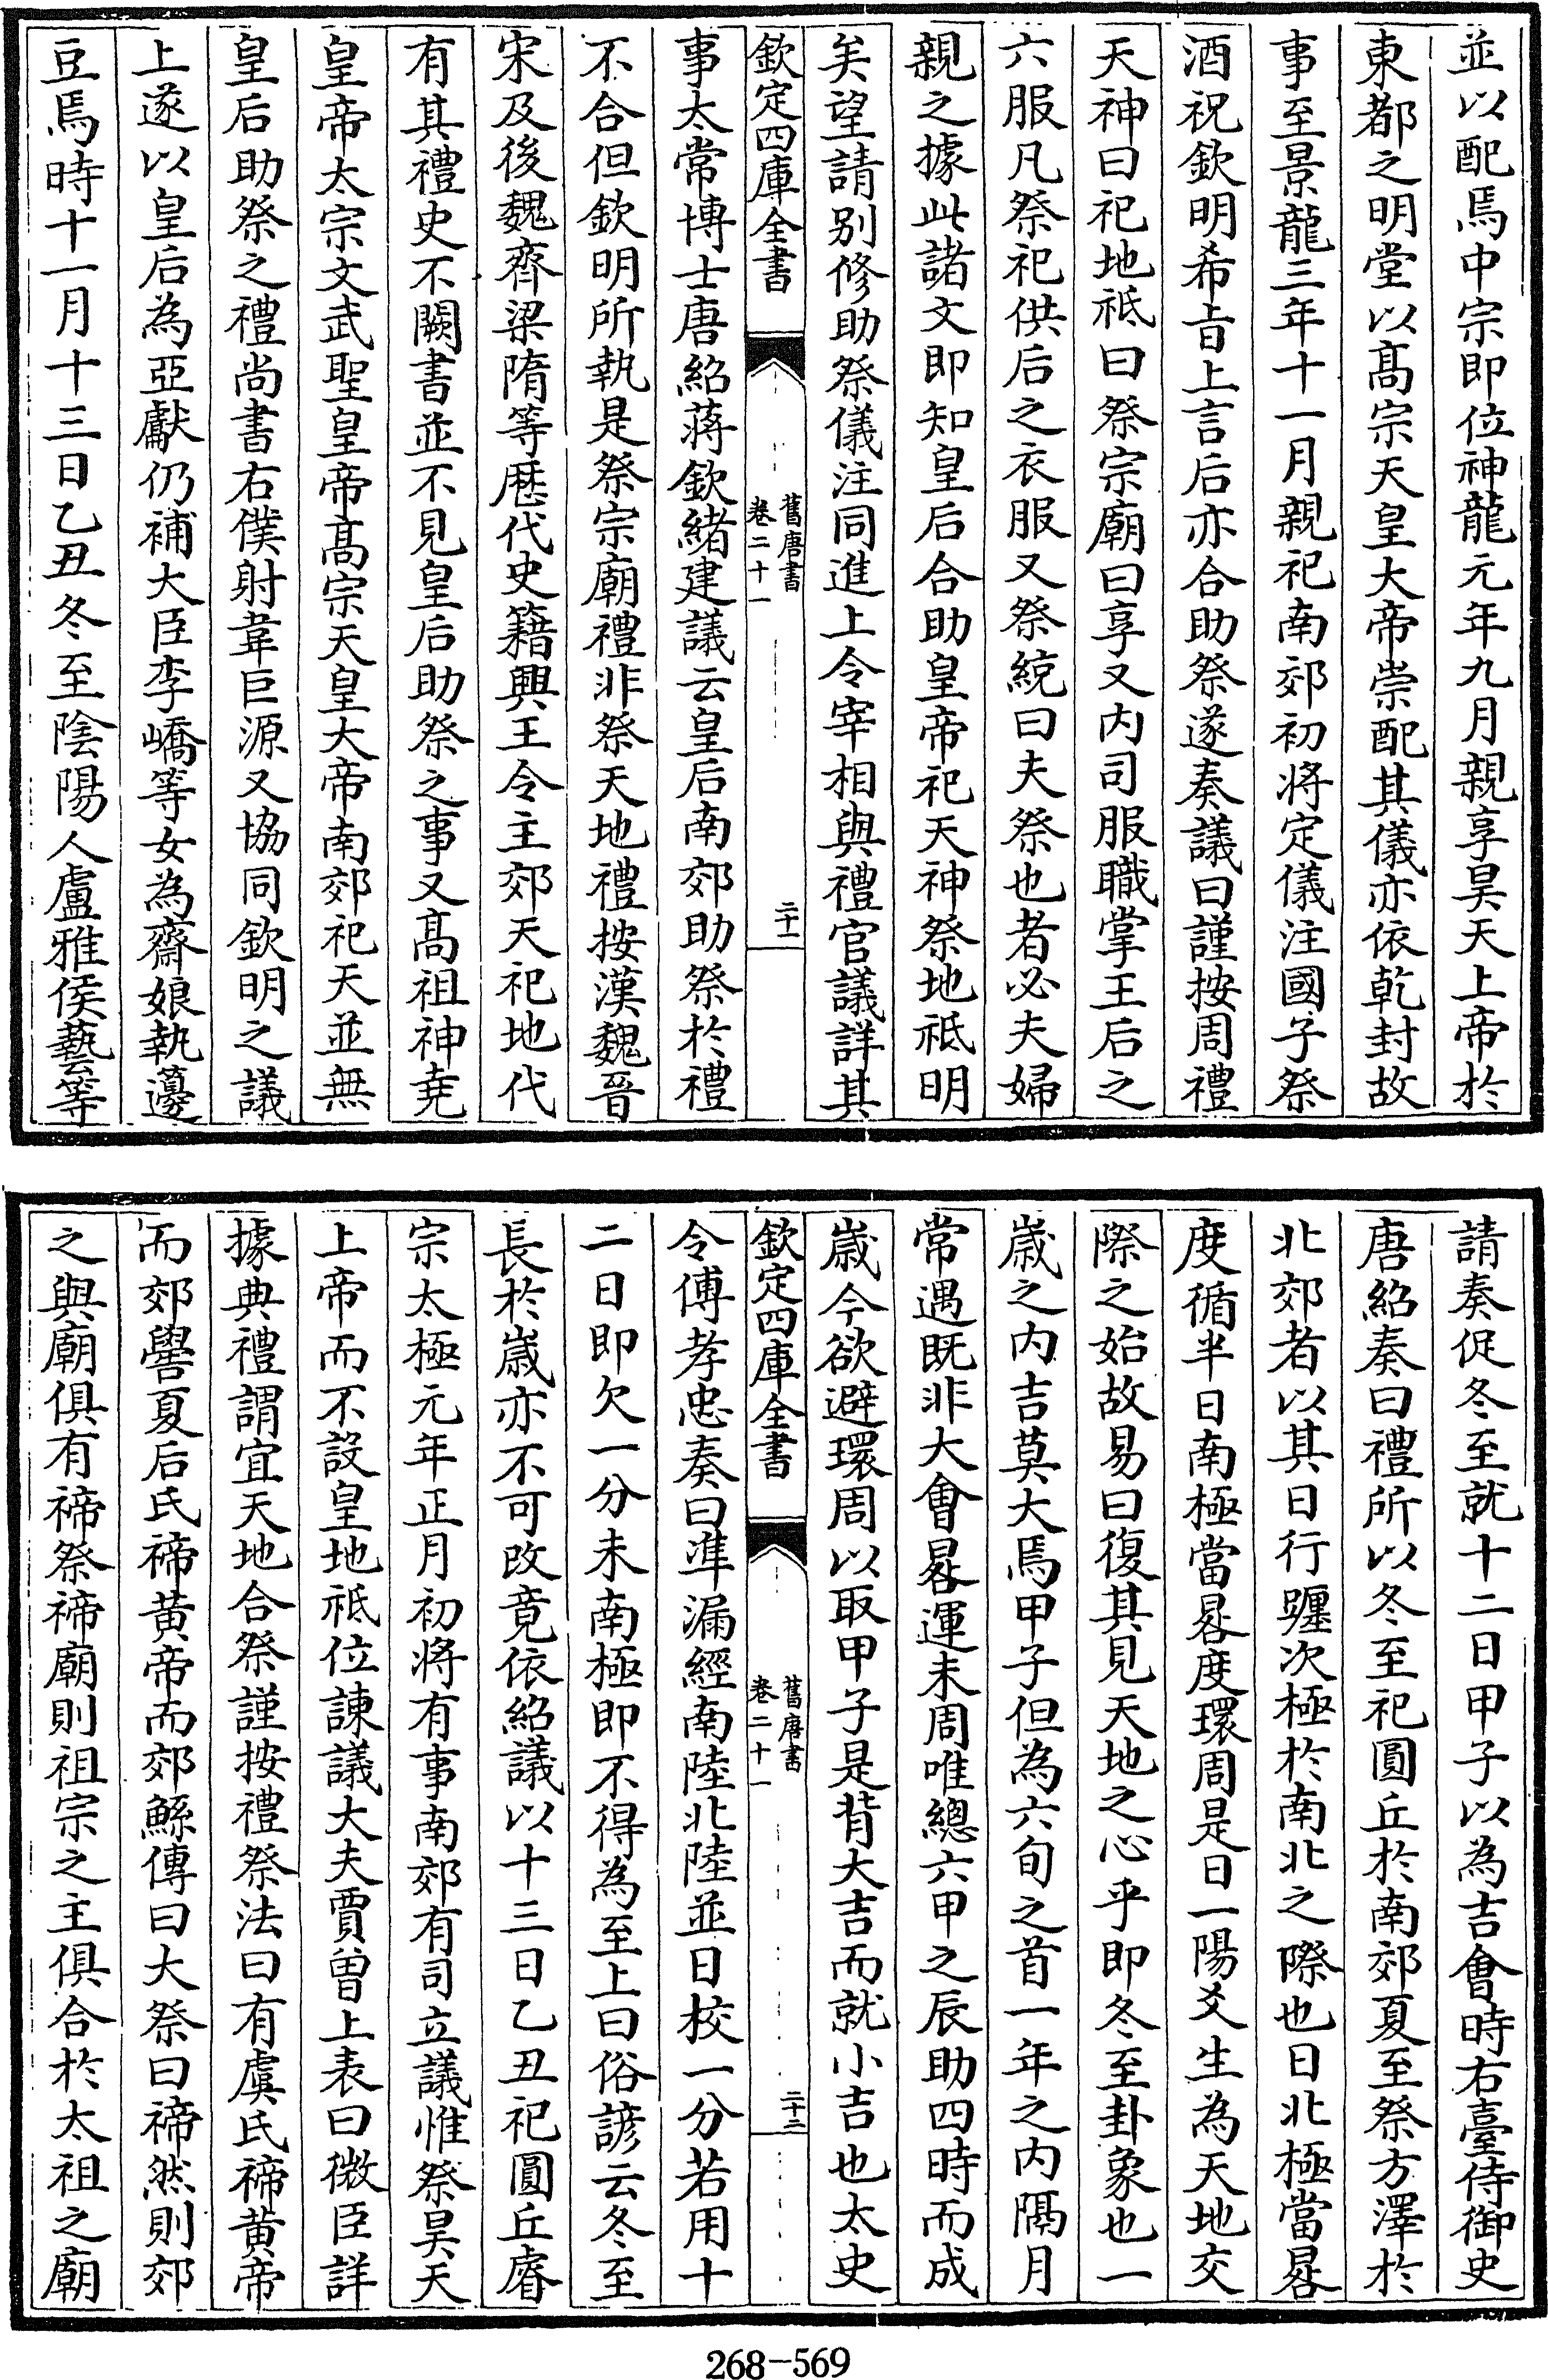 並以配焉中宗即位神龍元年九月親享昊天上帝於
東都之明堂以髙宗天皇大帝崇配其儀亦依乾封故
事至景龍三年十一月親祀南郊初將定儀注國子祭
酒祝欽明希旨上言后亦合助祭遂奏議曰謹按周禮
天神曰祀地祗曰祭宗廟曰享又内司服職掌王后之
六服凡祭祀供后之衣服又祭統曰夫祭也者必夫婦
親之據此諸文即知皇后合助皇帝祀天神祭地祗明
矣望請别修助祭儀注同進上令宰相與禮官議詳其
欽定四庫全書
舊唐書
卷二十一
二十一
事太常博士唐紹蔣欽緒建議云皇后南郊助祭於禮
不合但欽明所執是祭宗廟禮非祭天地禮按漢魏晉
宋及後魏齊梁隋等歴代史籍興王令主郊天祀地代
有其禮史不闕書並不見皇后助祭之事又髙祖神堯
皇帝太宗文武聖皇帝髙宗天皇大帝南郊祀天並無
皇后助祭之禮尚書右僕射韋巨源又協同欽明之議
上遂以皇后為亞獻仍補大臣李嶠等女為齋娘執籩
豆焉時十一月十三日乙丑冬至陰陽人盧雅侯藝等
請奏促冬至就十二日甲子以為吉會時右臺侍御史
唐紹奏曰禮所以冬至祀圓丘於南郊夏至祭方澤於
北郊者以其日行躔次極於南北之際也日北極當晷
度循半日南極當晷度環周是日一陽爻生為天地交
際之始故易曰復其見天地之心乎即冬至卦象也一
歲之内吉莫大焉甲子但為六旬之首一年之内隔月
常遇既非大會晷運未周唯總六甲之辰助四時而成
歲今欲避環周以取甲子是背大吉而就小吉也太史
欽定四庫全書
舊唐書
卷二十一
二十二
令傅孝忠奏曰準漏經南陸北陸並日校一分若用十
二日即欠一分未南極即不得為至上曰俗諺云冬至
長於歲亦不可改竟依紹議以十三日乙丑祀圓丘睿
宗太極元年正月初將有事南郊有司立議惟祭昊天
上帝而不設皇地祗位諫議大夫賈曾上表曰微臣詳
據典禮謂宜天地合祭謹按禮祭法曰有虞氏禘黄帝
而郊嚳夏后氏禘黄帝而郊鯀傳曰大祭曰禘然則郊
之與廟俱有禘祭禘廟則祖宗之主俱合於太祖之廟
268-569